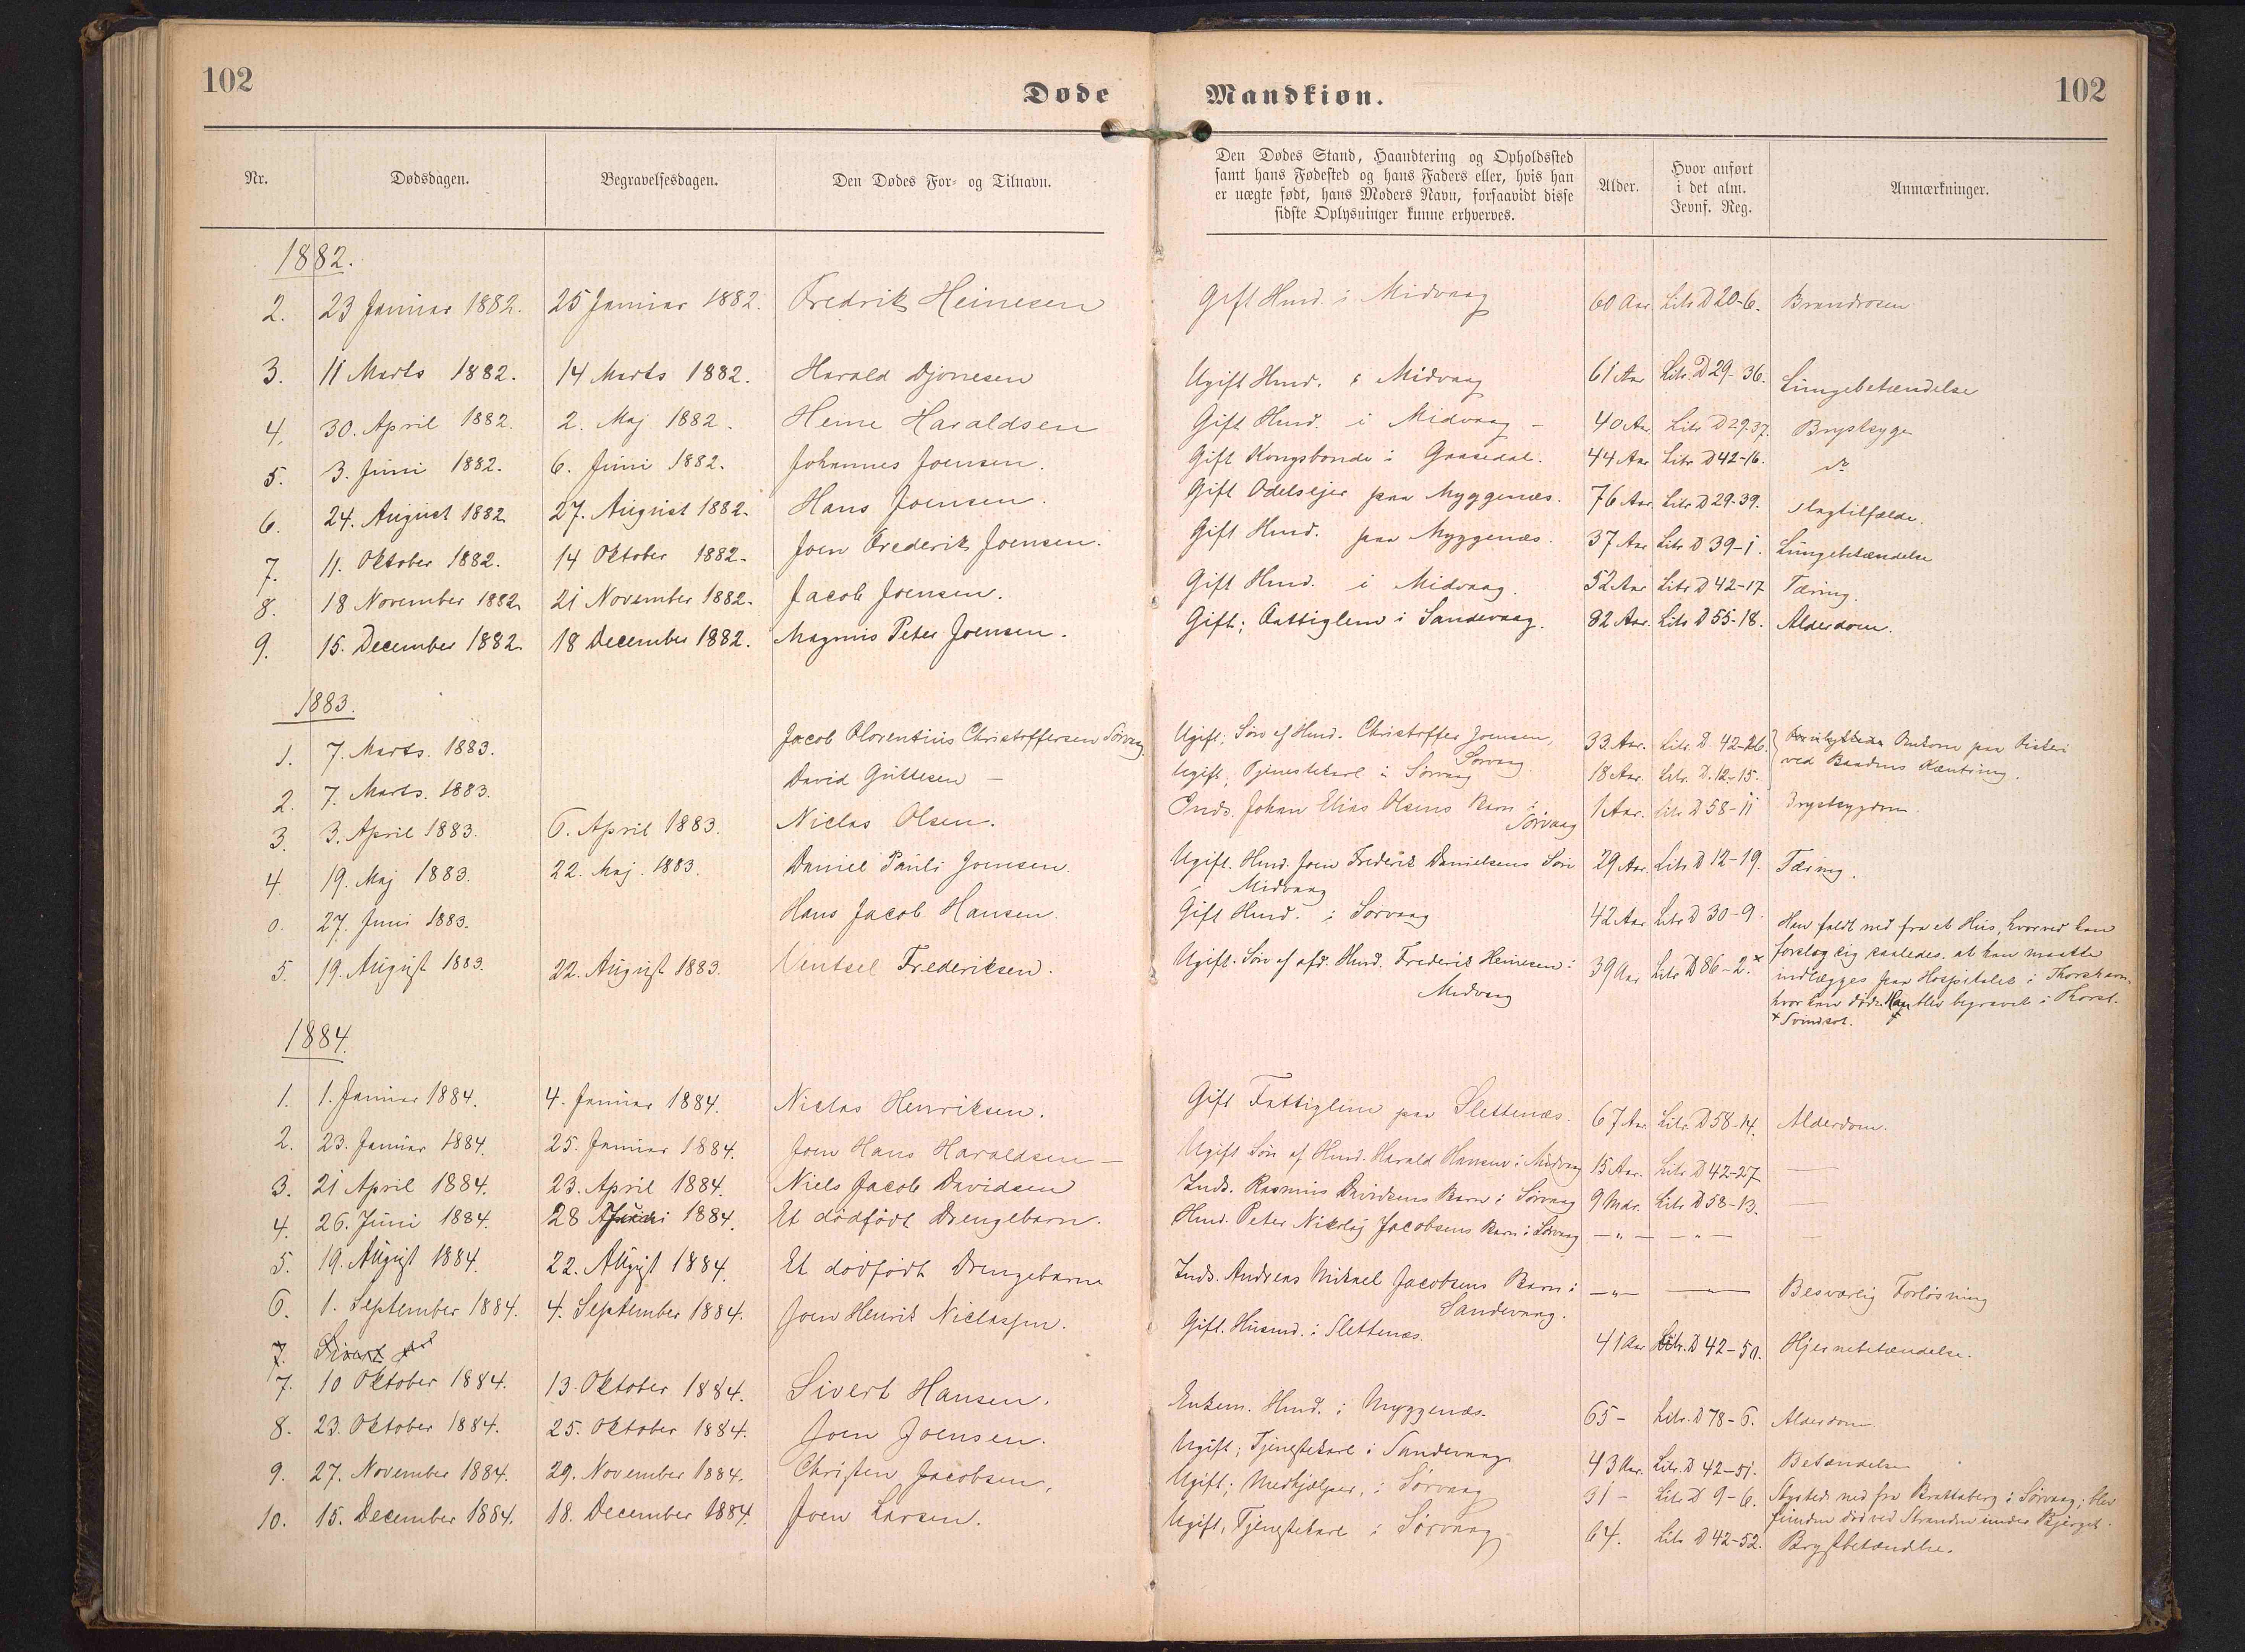 102
Døde
Mandkiøn.
102
Nr.
Dødsdagen.
Begravelsesdagen.
Den Dødes For- og Tilnavn.
Den Dødes Stand, Haandtering og Opholdssted
samt hans Fødested og hans Faders eller, hvis han
er uægte født, hans Moders Navn, forsaavidt disse
sidste Oplysninger kunne erhverves.
Alder.
Hvor anført
i det alm.
Jevnf. Reg.
Anmærkninger.
1882.
2. 23 Januar 1882. 25 Januar 1882. Fredrik Heinesen Gift Hmd. i Midvaag 60 Aar. Litr D 20-6. Brandrosen
3. 11 Marts 1882. 14 Marts 1882. Harald Djonesen Ugift Hmd. i Midvaag 61 Aar Litr. D 29-36. Lungebetændelse
4. 30. April 1882. 2. Maj 1882. Heine Haraldsen Gift Hmd. i Midvaag - 40 Aar. Litr D 29.37. Brystsyge
5. 3. Juni 1882. 6. Juni 1882. Johannes Joensen. Gift Kongsbonde i Gaasedal. 44 Aar Litr D 42-16. do
6. 24. August 1882 27. August 1882. Hans Joensen. Gift Odelsejer paa Myggenæs. 76 Aar Litr D 29-39. Slagtilfælde.
7. 11. Oktober 1882. 14 Oktober 1882. Joen Frederik Joensen. Gift Hmd. paa Myggenæs. 37 Aar Litr D 39-1. Lungebetændelse
8. 18 November 1882. 21 November 1882. Jacob Joensen. Gift Hmd. i Midvaag. 52 Aar Litr D 42-17 Tæring.
9. 15. December 1882. 18 December 1882. Magnus Peter Joensen. Gift; Fattiglem i Sandevaag. 82 Aar. Litr D 55-18. Alderdom.
1883.
1. 7. Marts. 1883. Jacob Florentius Christoffersen Sørvaag Ugift; Søn af Hmd. Christoffer Joensen, Sørvaag 33 Aar. Litr. D. 42-26. Omkom paa Fiskeri
2. 7. Marts. 1883. David Guttesen - Ugift; Tjenestekarl i Sørvaag 18 Aar. Litr. D. 12-15. ved Baadens Kæntring.
3. 3. April 1883. 6. April 1883. Niclas Olsen. Inds. Johan Elias Olsens Barn i Sørvaag 1 Aar. Litr D 58-11 Brystsygdom.
4. 19. Maj 1883. 22. Maj. 1883. Daniel Pauli Joensen. Ugift. Hmd. Joen Frederik Danielsens Søn Midvaag 29 Aar. Litr D 12-19. Tæring.
0. 27. Juni 1883. Hans Jacob Hansen. Gift Hmd. i Sørvaag 42 Aar Litr D 30-9. Han faldt ned fra et Hus, hvorved han
forslog sig saaledes, at han maatte
indlægges paa Hospitalet i Thorshavn,
hvor han døde. Han blev begravet i Thorsh.
5. 19. August 1883. 22. August 1883. Ventsel Frederiksen. Ugift. Søn af afd. Hmd. Frederik Heinesen i Midvaag 39 Aar Litr D 86-2. x
x Svindsot.
1884.
1. 1. Januar 1884. 4. Januar 1884. Niclas Henriksen. Gift Fattiglem paa Slettenæs. 67 Aar Litr. D 58-14. Alderdom.
2. 23. Januar 1884. 25. Januar 1884. Joen Hans Haraldsen - Ugift Søn af Hmd. Harald Hansen i Midvaag 15 Aar. Litr D 42-27 —
3. 21 April 1884. 23. April 1884. Niels Jacob Davidsen Inds. Rasmus Davidsens Barn i Sørvaag 9 Mdr. Litr D 58-13. —
4. 26. Juni 1884. 28 Juni 1884. Et dødfødt Drengebarn. Hmd. Peter Nikolaj Jacobsens Barn i Sørvaag — " — — " — —
5. 19. August 1884. 22. August 1884. Et dødfødt Drengebarn Inds. Andreas Mikael Jacobsens Barn i Sandevaag. — " — — " — Besværlig Forløsning
6. 1. September 1884. 4. September 1884. Joen Henrik Niclassen. Gift. Husmd. i Slettenæs. 41 Aar Litr. D 42-50. Hjernebetændelse.
7. Sivert
7. 10 Oktober 1884. 13. Oktober 1884. Sivert Hansen. Enkem. Hmd. i Myggenæs. 65 - Litr. D 78-6. Alderdom.
8. 23. Oktober 1884. 25. Oktober 1884. Joen Joensen. Ugift; Tjenestekarl i Sandevaag 43 Aar. Litr. D 42-51. Betændelse
9. 27. November 1884. 29. November 1884. Christen Jacobsen, Ugift; Medhjælper, i Sørvaag 31 - Litr D 9-6. Styrtede ned fra Brattaberg i Sørvaag; blev
funden død ved Stranden under Bjerget.
10. 15. December 1884. 18. December 1884. Joen Larsen. Ugift, Tjenestekarl i Sørvaag. 64. Litr D 42-52. Brystbetændelse.